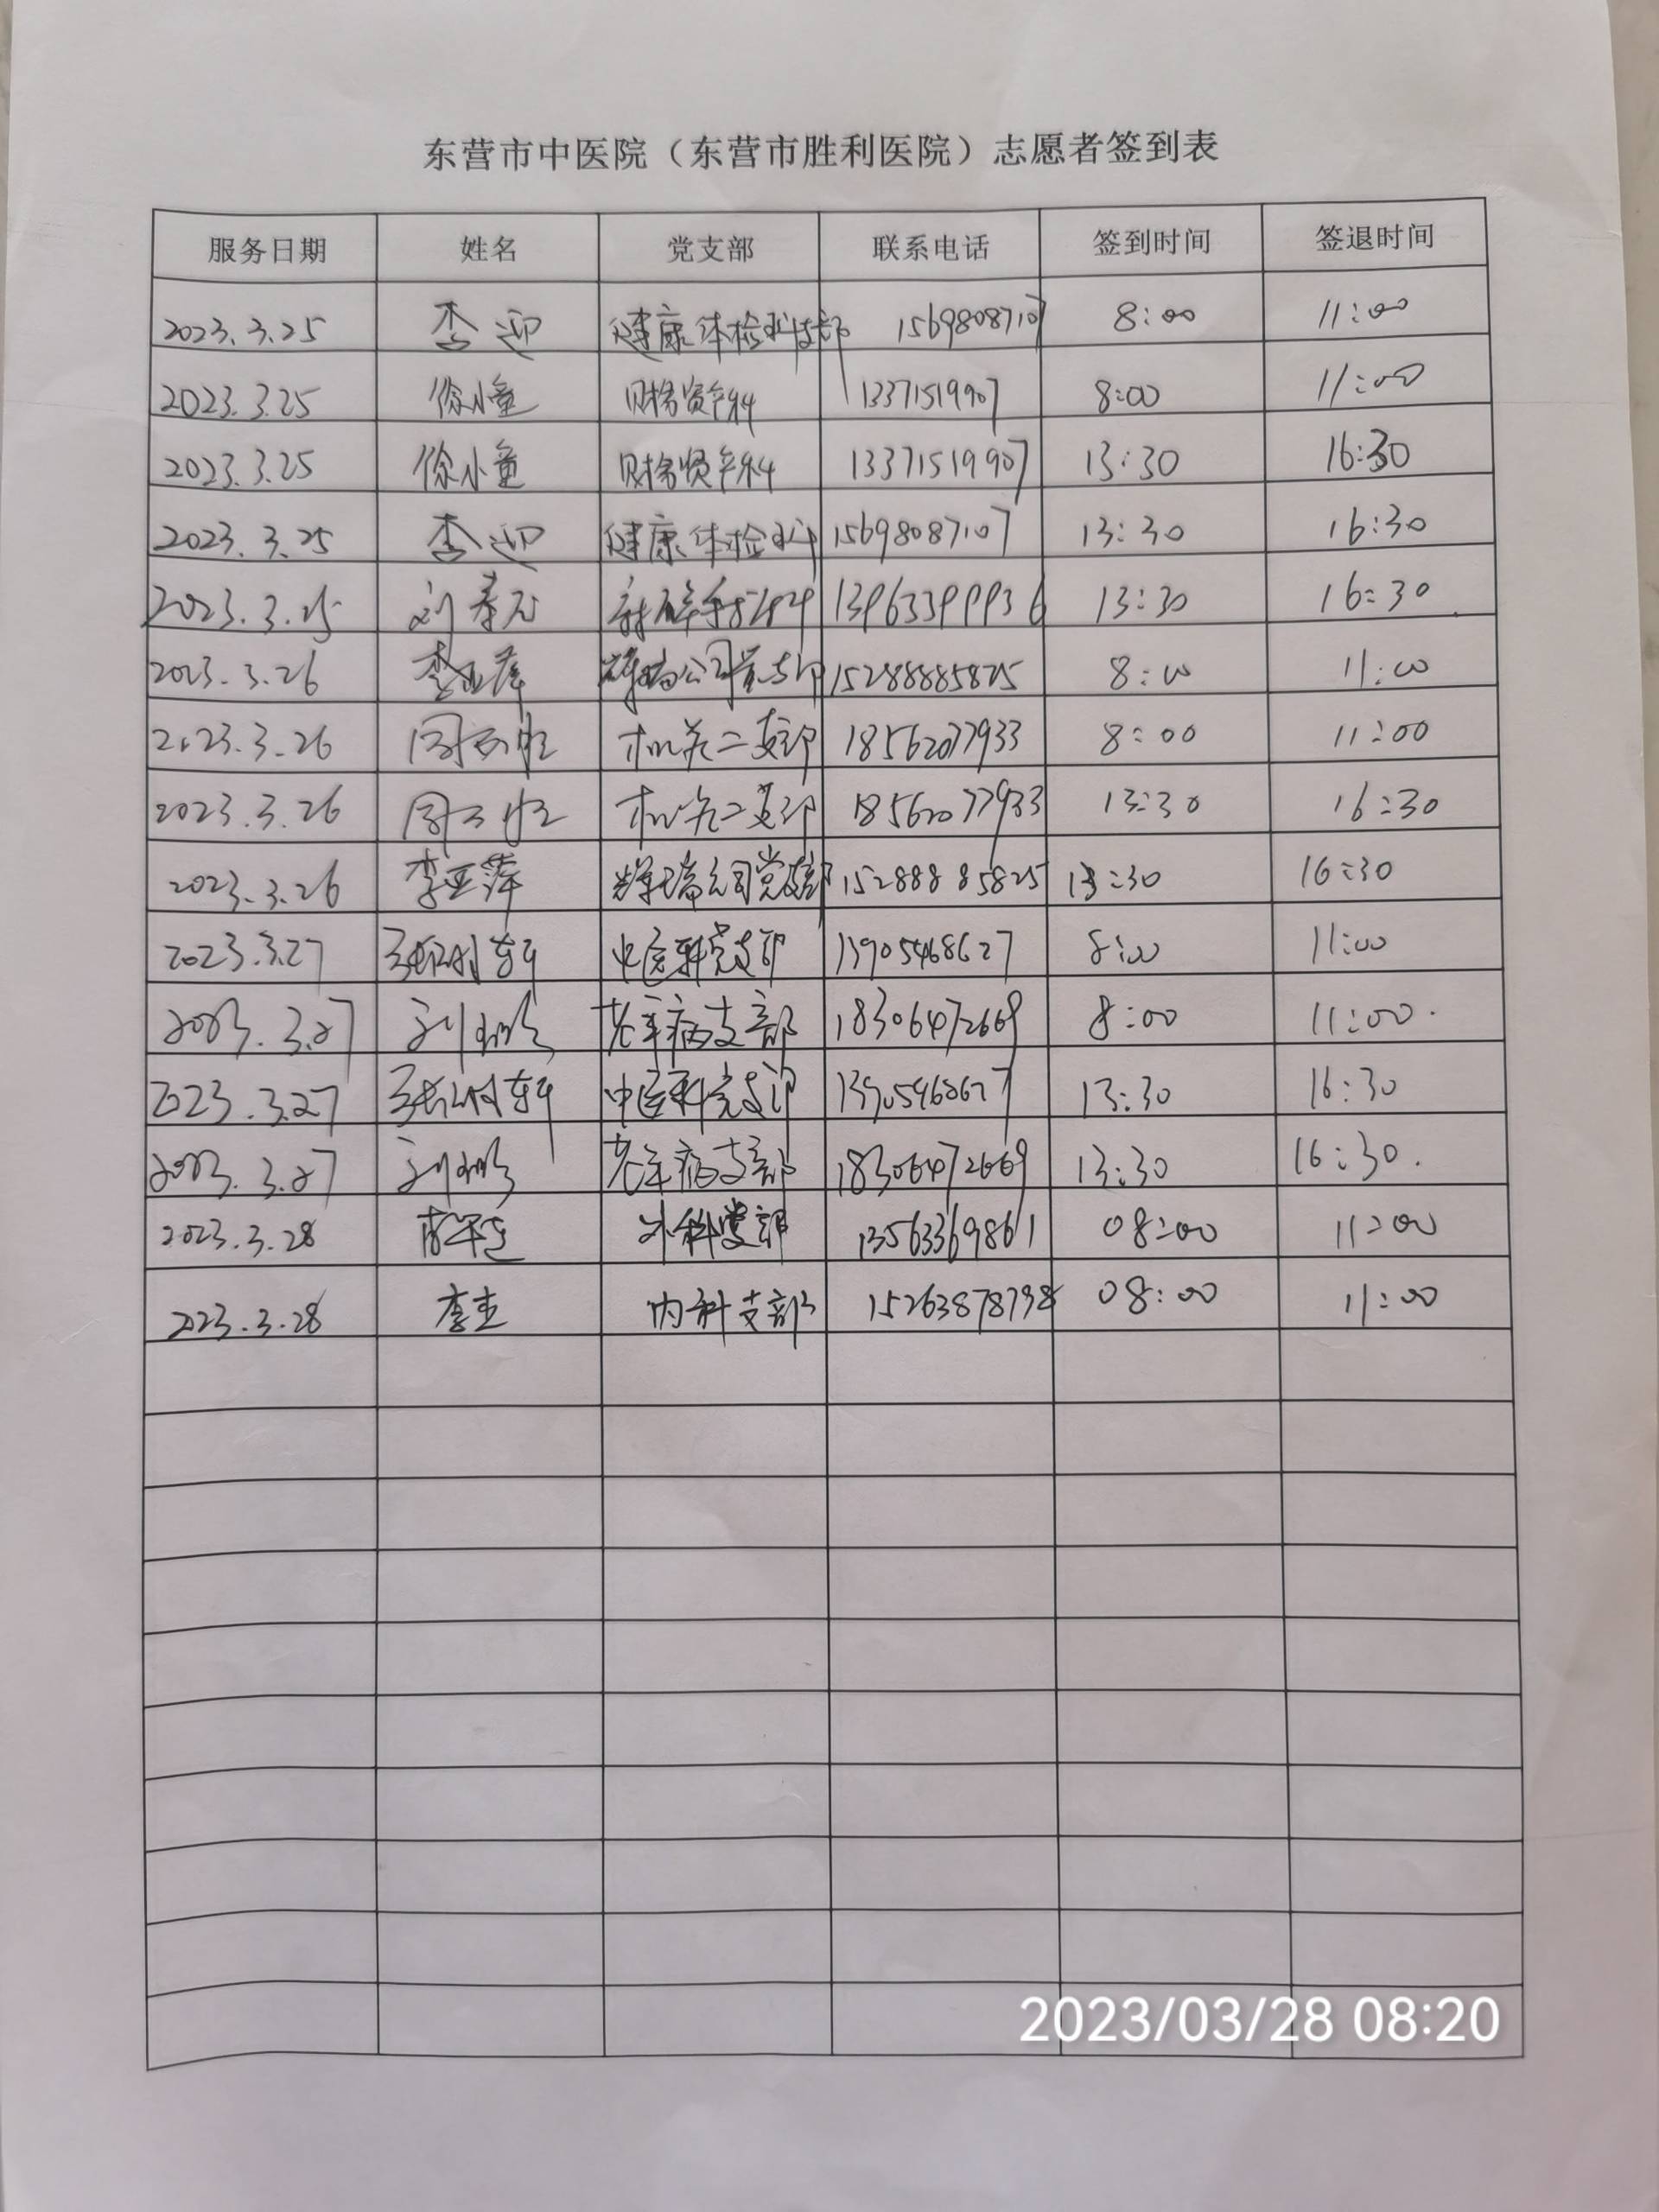 东营市中医院（东营市胜利医院）志愿者签到表
服务日期 姓名 党支部 联系电话 签到时间 签退时间
2023.3.25 李迎 健康体检科支部 15698087107 8:00 11:00
2023.3.25 徐小童 财务资产科 13371519907 8:00 11:00
2023.3.25 徐小童 财务资产科 13371519907 13:30 16:30
2023.3.25 李迎 健康体检科 15698087107 13:30 16:30
2023.3.25 刘 13963399936 13:30 16:30
2023.3.26 李亚萍 辉瑞公司党支部 15288885825 8:00 11:00
2023.3.26 周 机关二支部 18562077933 8:00 11:00
2023.3.26 周 机关二支部 18562077933 13:30 16:30
2023.3.26 李亚萍 辉瑞公司党支部 15288885825 13:30 16:30
2023.3.27 中医科党支部 13905468627 8:00 11:00
2023.3.27 刘 老年病支部 18306472669 8:00 11:00.
2023.3.27 中医科党支部 13905468627 13:30 16:30
2023.3.27 刘 老年病支部 18306472669 13:30 16:30.
2023.3.28 外科 13563369861 08:00 11:00
2023.3.28 李 内科支部 15263878798 08:00 11:00
2023/03/28 08:20